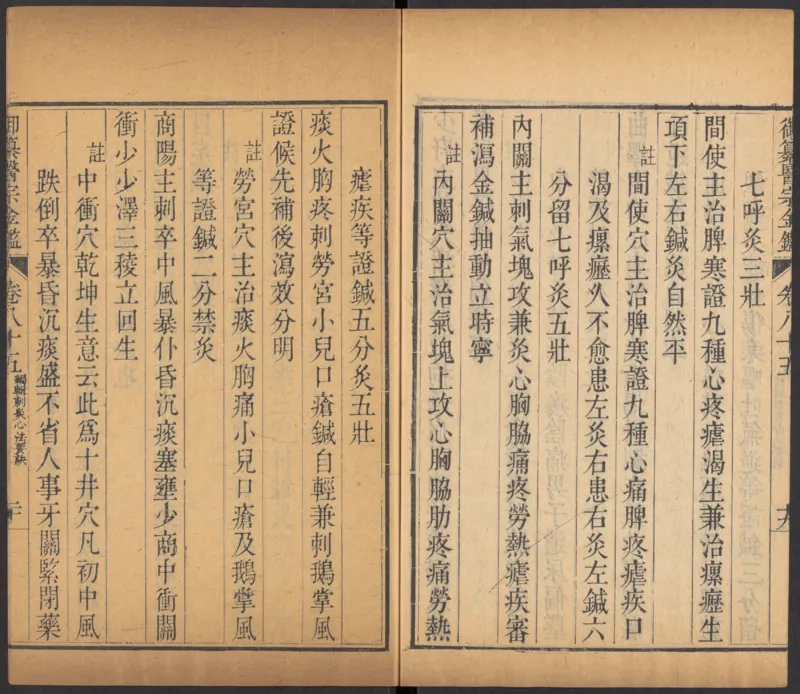 七呼灸三壯
間使主治脾寒證九種心疼瘧渴生兼治瘰癧生
項下左右鍼灸自然平
註間使穴主治脾寒證九種心痛脾疼瘧疾口
渴及瘰癧久不愈患左灸右患右灸左鍼六
分留七呼灸五壯
內關主刺氣塊攻兼灸心胸脇痛疼勞熱瘧疾審
補瀉金鍼抽動立時寧
註內關穴主治氣塊上攻心胸脇肋疼痛勞熱
瘧疾等證鍼五分灸五壯
痰火胸疼刺勞宮小兒口瘡鍼自輕兼刺鵝掌風
證候先補後瀉效分明
註勞宮穴主治痰火胸痛小兒口瘡及鵝掌風
等證鍼二分禁灸
商陽主刺卒中風暴仆昏沉痰塞壅少商中衝關
衝少少澤三稜立回生
註中衝穴乾坤生意云此為十井穴凡初中風
跌倒卒暴昏沉痰盛不省人事牙關緊閉藥
御纂醫宗金鑑 卷八十五 編輯刺灸心法要訣